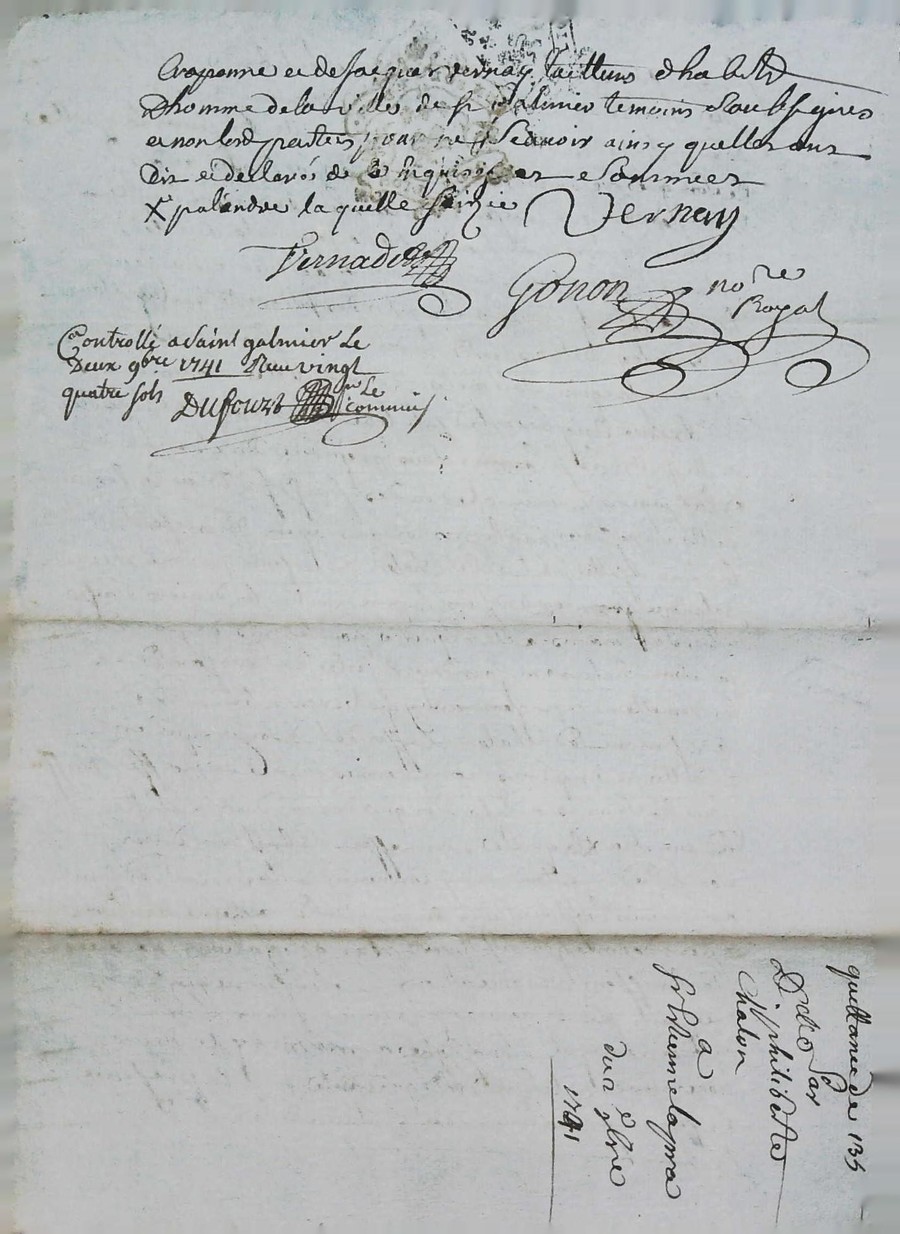 Craponne et de jacques vernay tailleurs dhabitz
Dhomme de la ville de st galmier temoins soubsignes
et non lesd parties pour ne scavoir ainsy quelles ont
Dit et declaré de ce enquises et sommees
X palandre la quelle Vernay
Vernade
Gonon no.re
Royal
Controllé a Saint galmier Le
Deux 9bre 1741 Reçu vingt
quatre sols
Dufour Le
commis
quittance de 135
D philiberte
Chalon
a
st Etienne lapra
du 2 9bre
1741